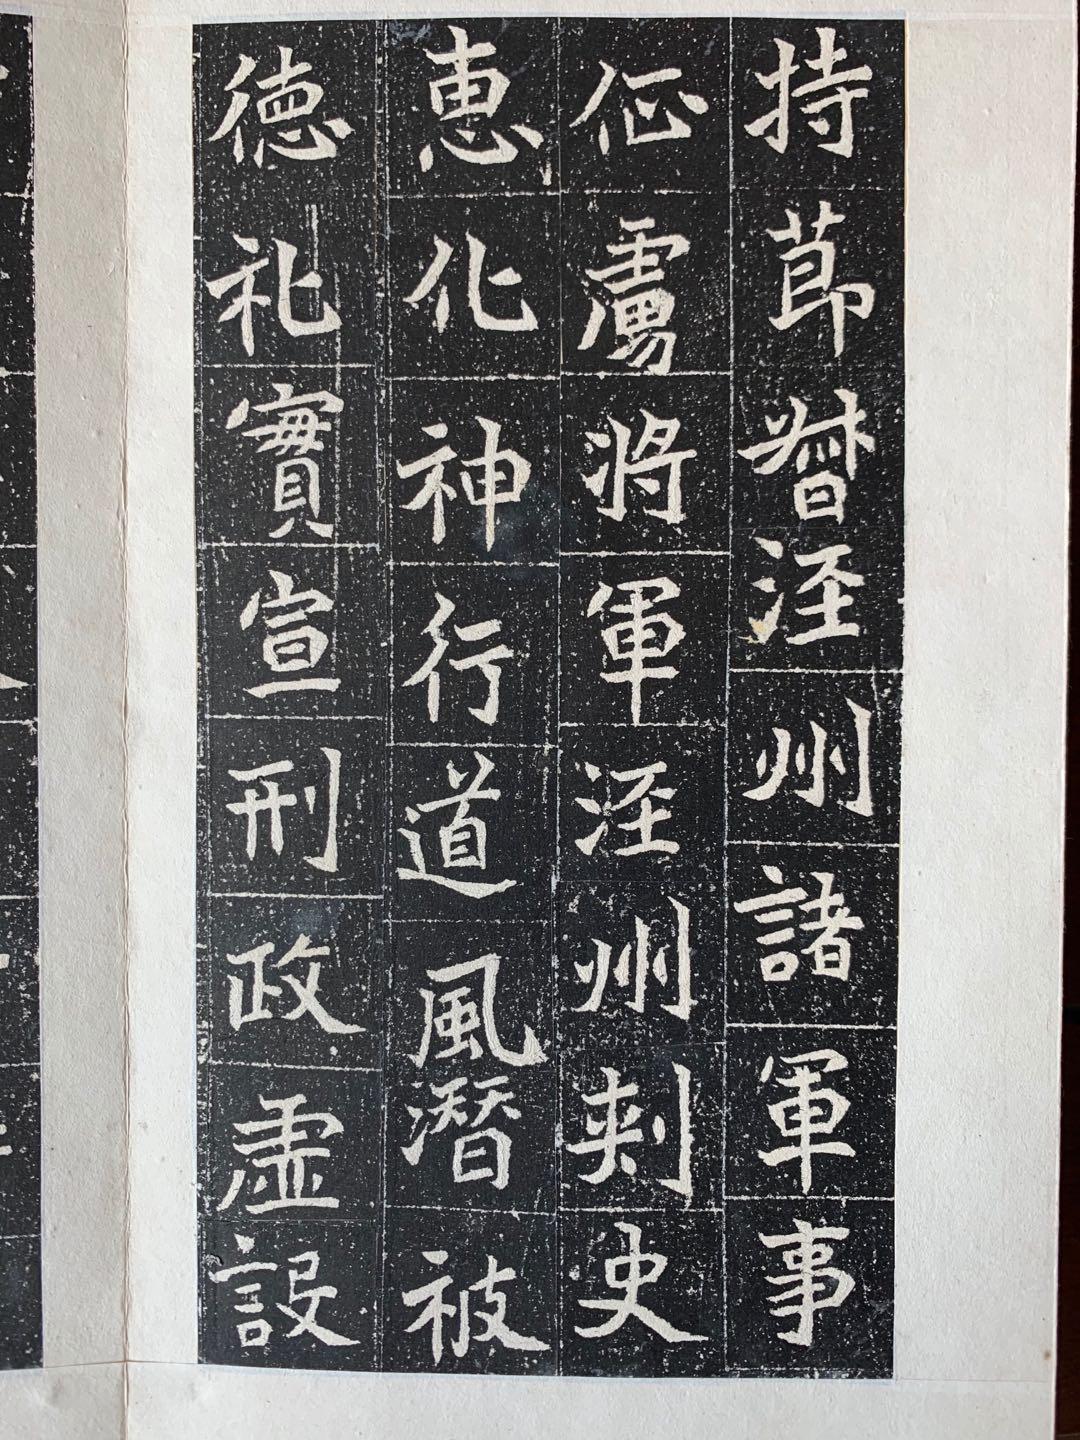 持節督涇州諸軍事
征虜將軍涇州刺史
恵化神行道風潜被
徳礼實宣刑政虚設